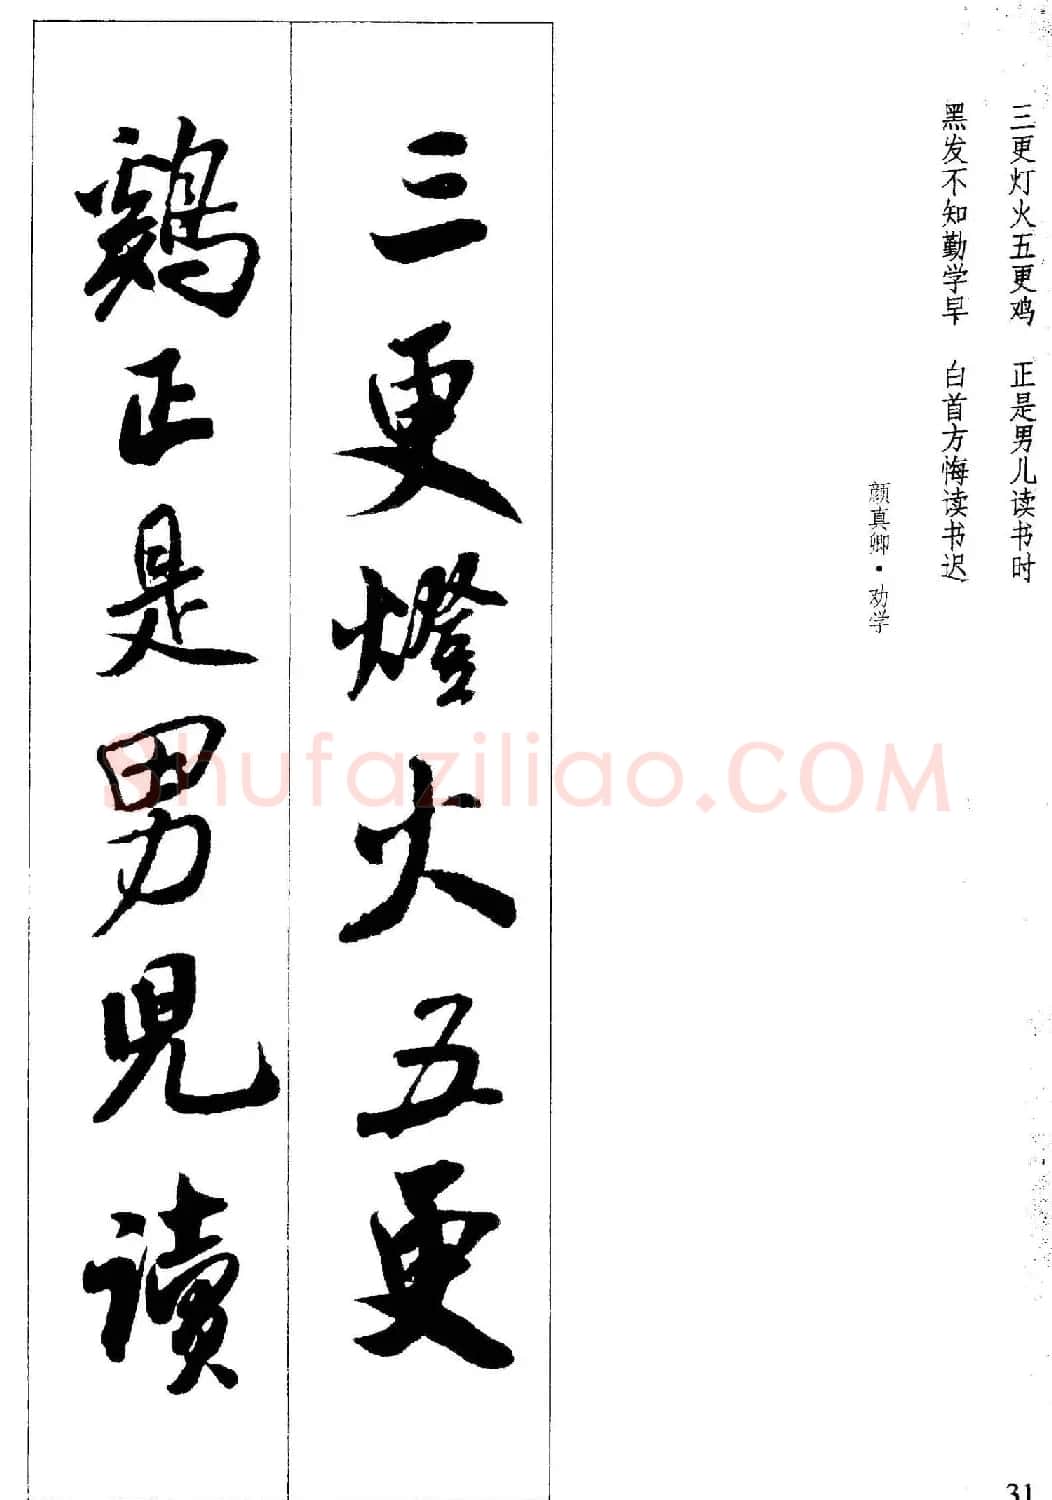 三更灯火五更鸡 正是男儿读书时
黑发不知勤学早 白首方悔读书迟
颜真卿·劝学
三更燈火五更
鷄正是男兒讀
Shufaziliao.COM
31